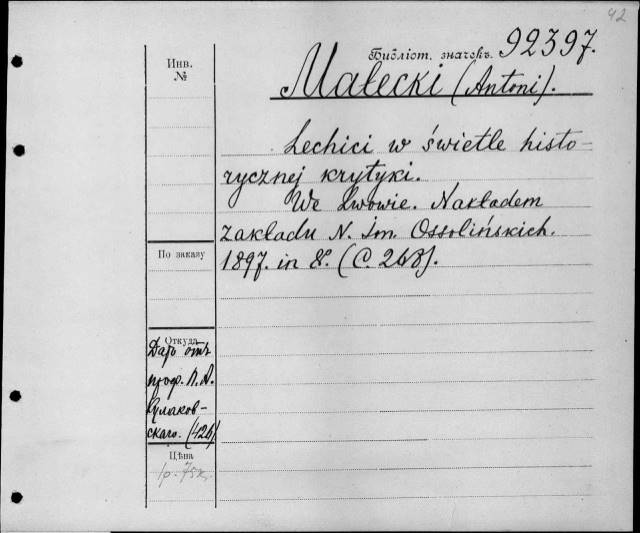 42
Библіот. значекъ. 92397.
Małecki (Antoni).
Инв.
№
Lechici w świetle histo-
rycznej krytyki.
We Lwowie. Nakładem
zakładu N. Im. Ossolińskich.
1897. in 8°. (C. 248).
По заказу
Откуда
Даръ отъ
проф. П. А.
Кулаков-
скаго. (426)
Цѣна
1р. 75к.